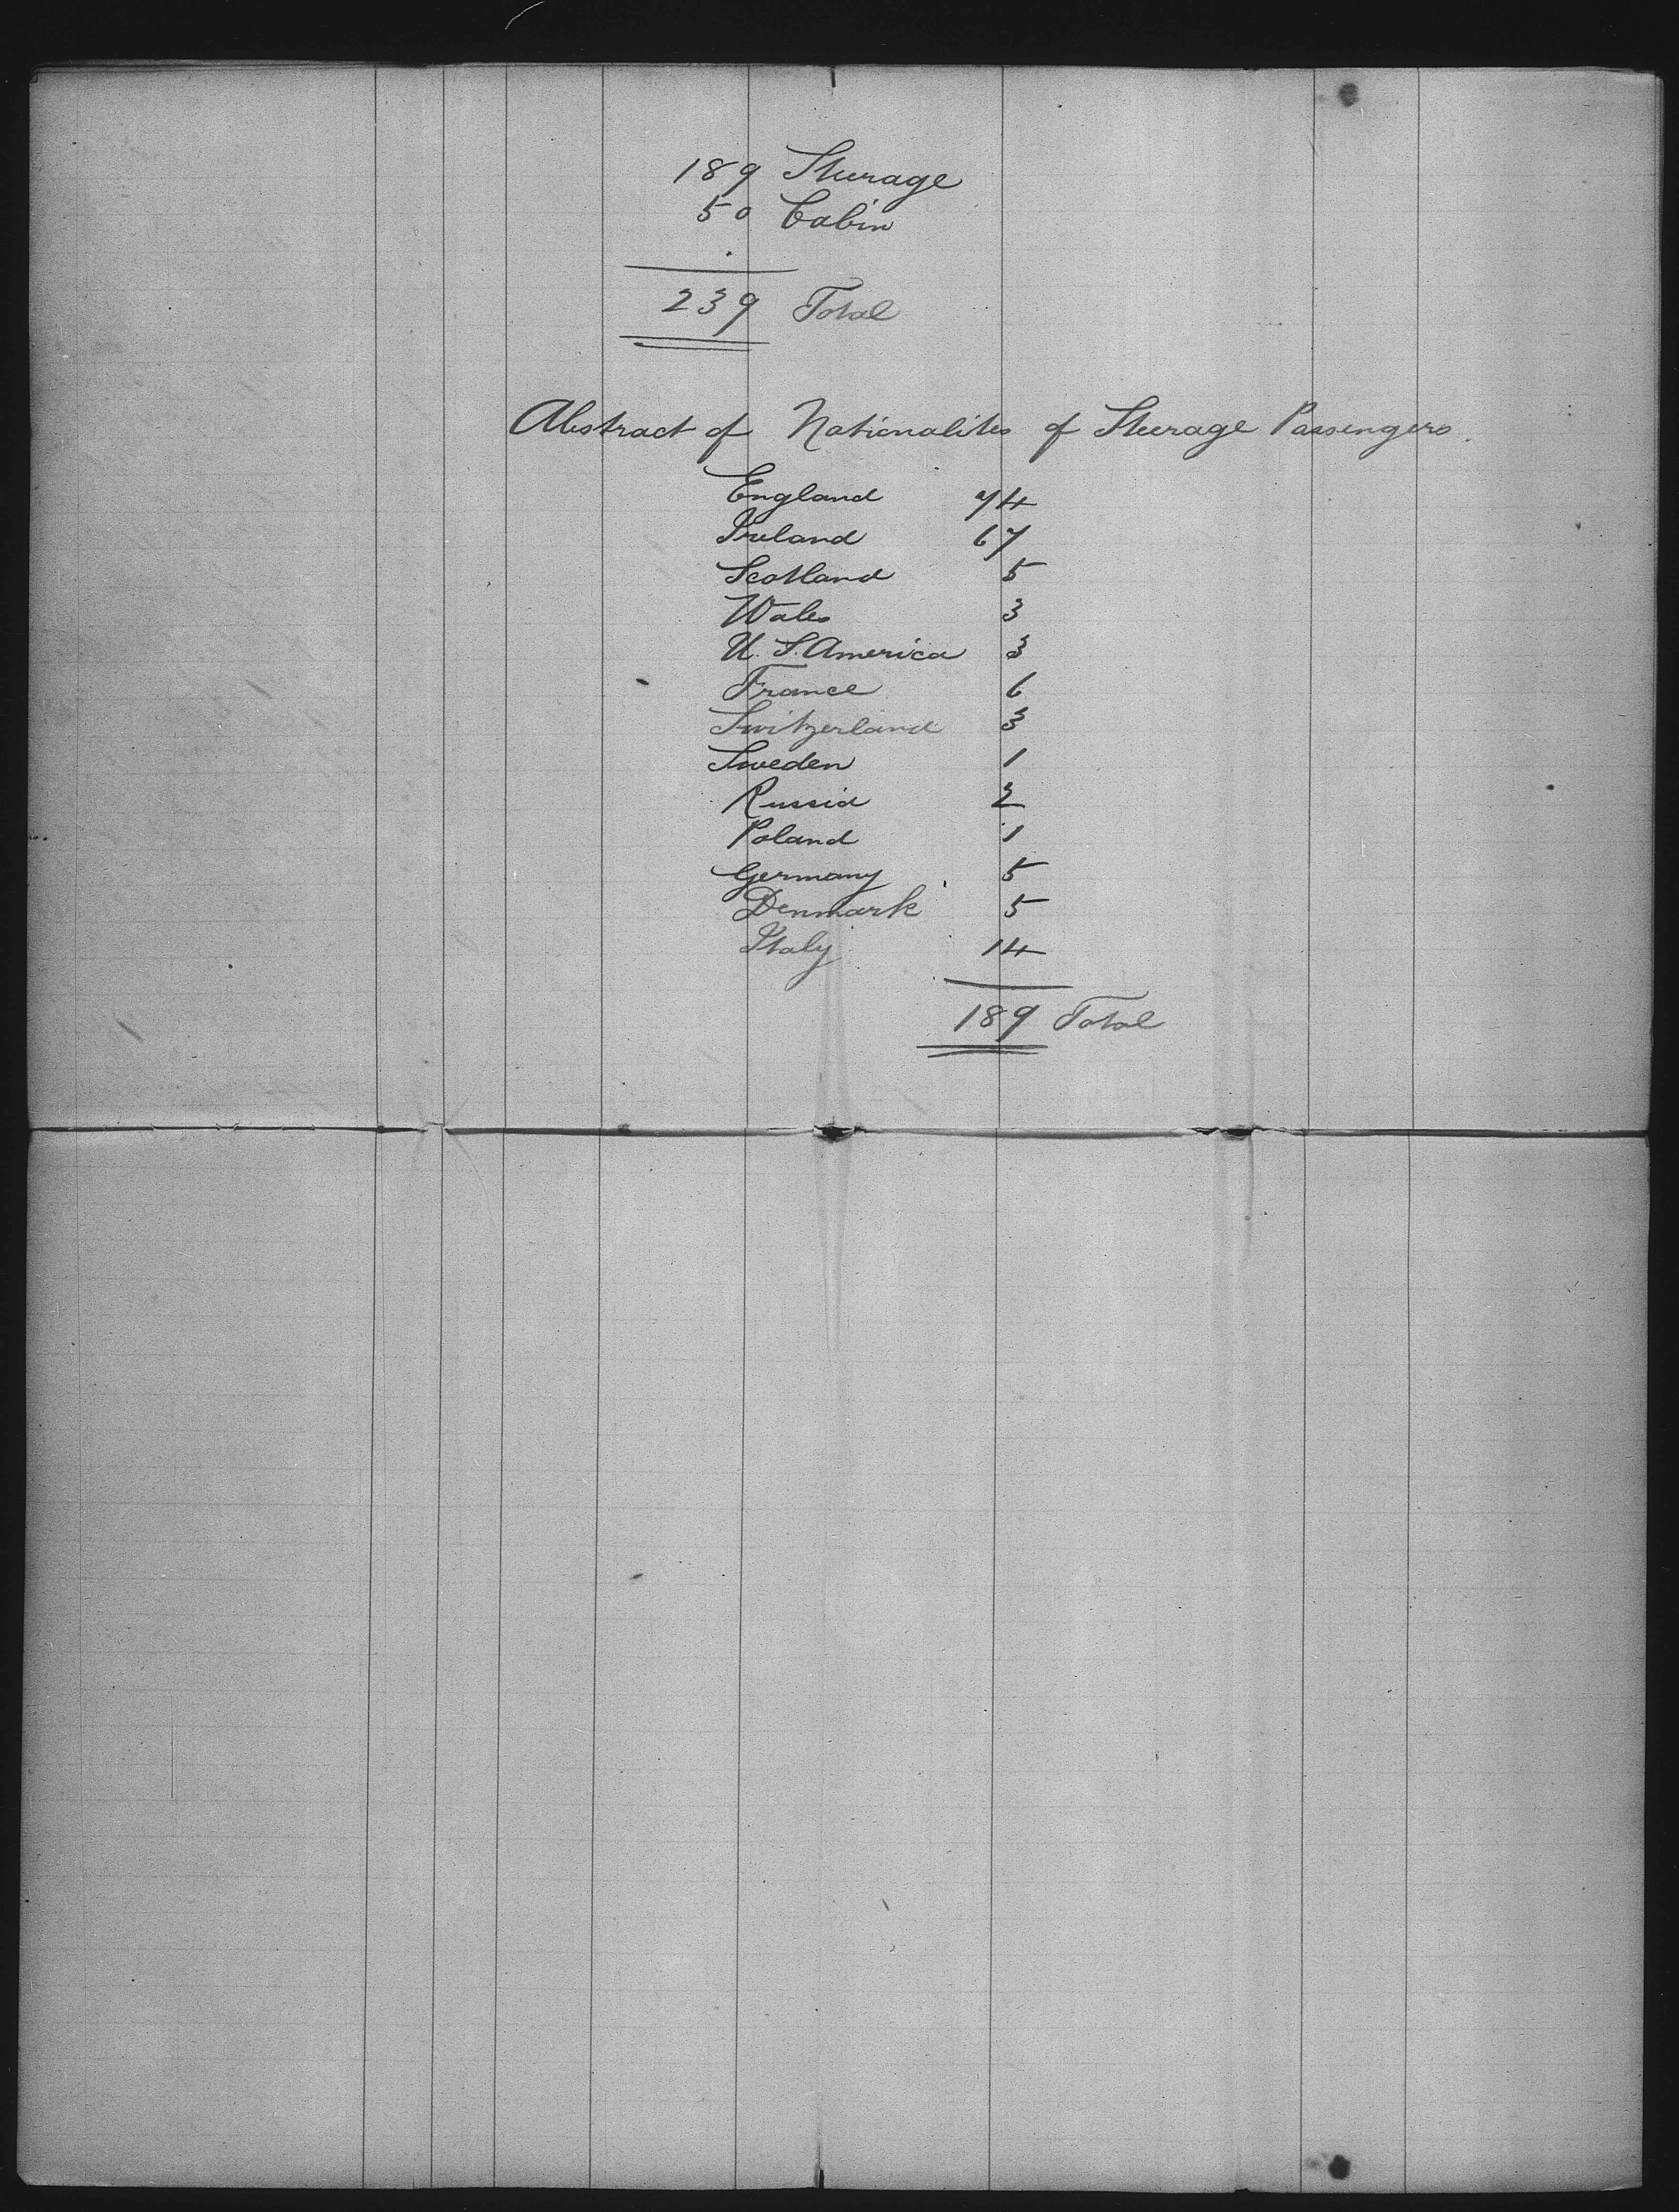 189 Steerage
50 Cabin
239 Total
Abstract of Nationalites of Steerage Passengers.
England 74
Ireland 67
Scotland 5
Wales 3
U. S. America 3
France 6
Switzerland 3
Sweden 1
Russia 2
Poland 1
Germany 5
Denmark 5
Italy 14
189 Total